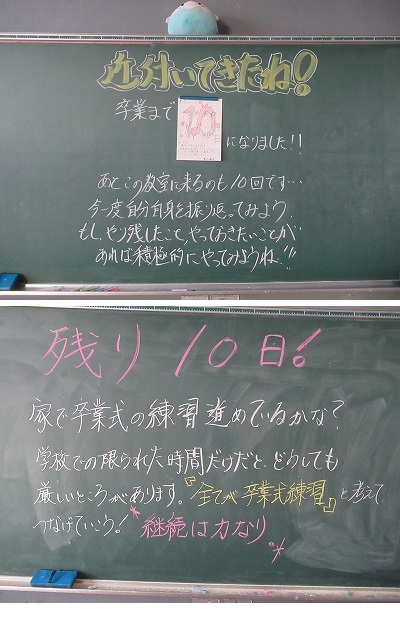 近付いてきたね!
卒業まで 10 になりました!!
あとこの教室に来るのも10回です…
今一度自分自身を振り返ってみよう。
もし、やり残したこと、やっておきたいことが
あれば積極的にやってみようね!!
残り10日!
家で卒業式の練習進めているかな?
学校での限られた時間だけだと、どうしても
厳しいところがあります。『全てが卒業式練習』と考えて
つなげていこう! *継続は力なり*